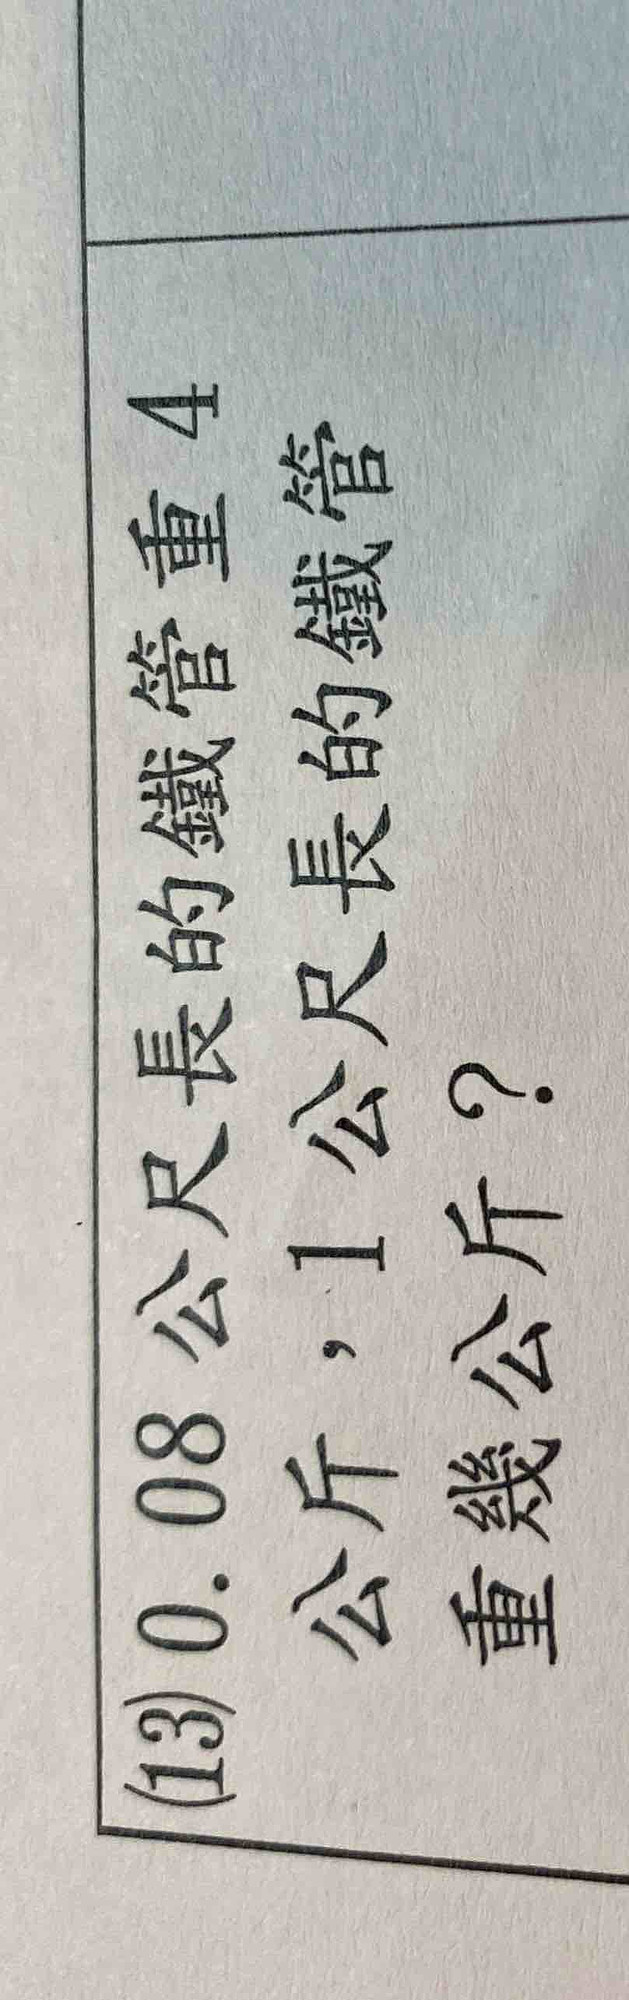 (13) 0.08公尺長的鐵管重4
公斤，1公尺長的鐵管
重幾公斤？